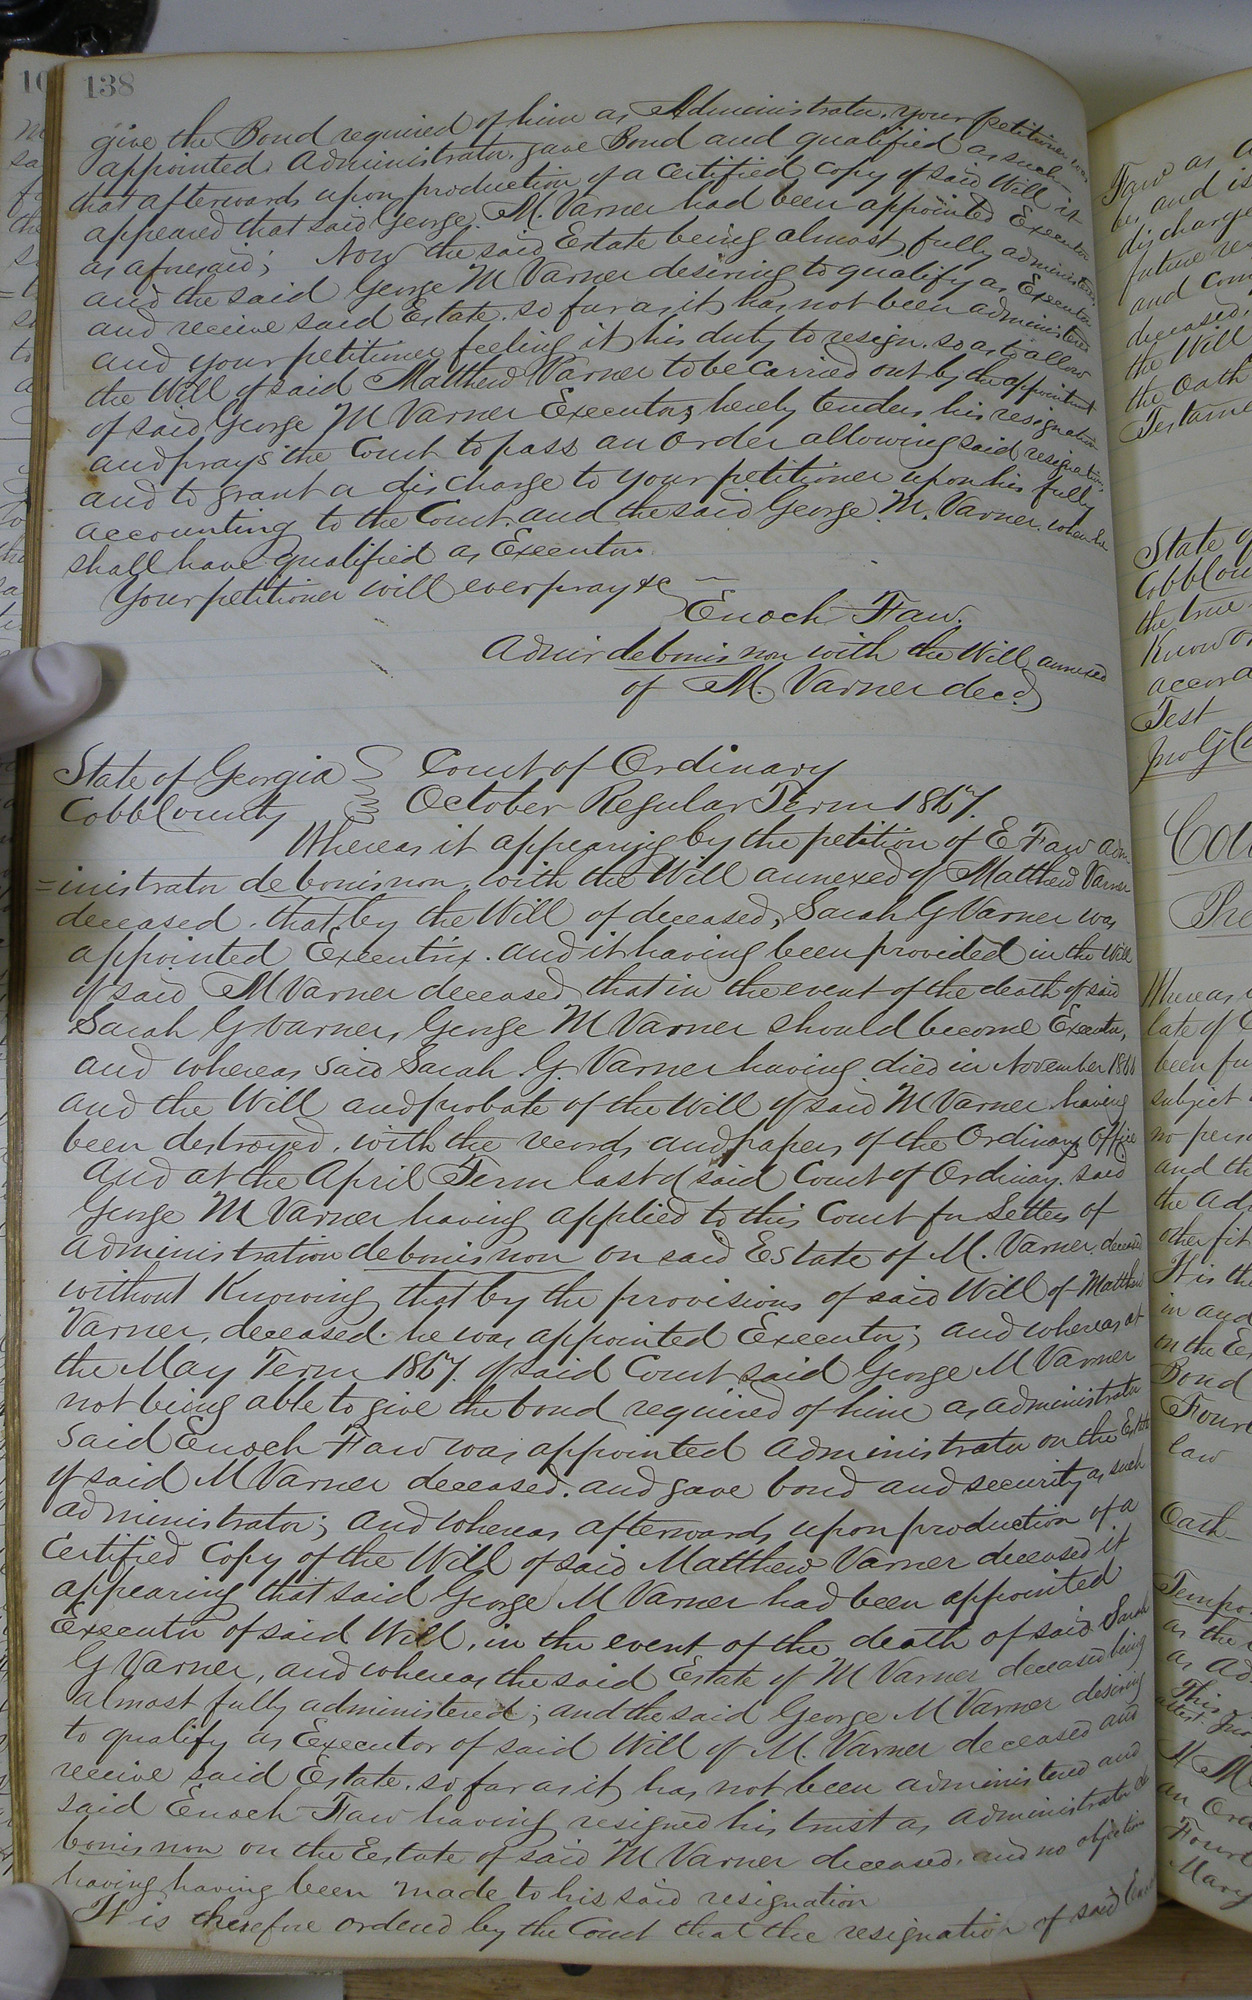 138
give the Bond required of him as Administrator, your petitioner was
appointed Administrator, gave Bond and qualified as such
that afterwards upon production of a certified copy of said Will it
appeared that said George M. Varner had been appointed Executor
as aforesaid; Now the said Estate being almost fully administered
and the said George M Varner desiring to qualify as Executor
and receive said Estate so far as it has not been administered
and your petitioner feeling it his duty to resign so as to allow
the Will of said Matthew Varner to be carried out by the appointment
of said George M Varner Executor, hereby tenders his resignation
and prays the Court to pass an order allowing said resignation
and to grant a discharge to your petitioner upon his fully
accounting to the Court and the said George M. Varner when he
shall have qualified as Executor.
Your petitioner will ever pray &c
Enoch Faw.
Admr de bonis non with the Will annexed
of M. Varner decd
State of Georgia Court of Ordinary
Cobb County October Regular Term 1867.
Whereas it appearing by the petition of E Faw adm-
=inistrator de bonis non, with the Will annexed of Matthew Varner
deceased, that by the Will of deceased, Sarah G Varner was
appointed Executrix. and it having been provided in the Will
of said M Varner deceased that in the event of the death of said
Sarah G Varner, George M Varner should become Executor,
and whereas said Sarah G. Varner having died in November 1866
and the Will and probate of the Will of said M Varner having
been destroyed, with the records and papers of the Ordinarys Office
and at the April Term last of said Court of Ordinary said
George M Varner having applied to this Court for Letters of
administration de bonis non on said Estate of M. Varner deceased
without Knowing that by the provisions of said Will of Matthew
Varner, deceased. he was appointed Executor; and whereas at
the May Term 1867. of said Court said George M Varner
not being able to give the bond required of him as administrator
said Enoch Faw was appointed administrator on the Estate
of said M Varner deceased. and gave bond and security as such
administrator; and whereas afterwards upon production of a
Certified Copy of the Will of said Matthew Varner deceased it
appearing that said George M Varner had been appointed
Executor of said Will, in the event of the death of said Sarah
G Varner, and whereas the said Estate of M Varner deceased being
almost fully administered; and the said George M Varner desiring
to qualify as Executor of said Will of M. Varner deceased and
receive said Estate. so far as it has not been administered and
said Enoch Faw having resigned his trust as administrator de
bonis non on the Estate of said M Varner deceased. and no objection
having having been made to his said resignation
It is therefore ordered by the Court that the resignation of said Enoch
Faw as
be, and is
discharge
future
and com
deceased,
the Will
the oath
Testame
State of
Cobb Cou
the true
Know or
accord
Test
Jno G
Cou
Whereas
late of C
been fu
subject
no pers
and the
the adm
other fit
It is the
in and
on the Es
Bond
Four
law
Tempo
as the
as Ad
This
attest
an Ord
Fourt
Mary